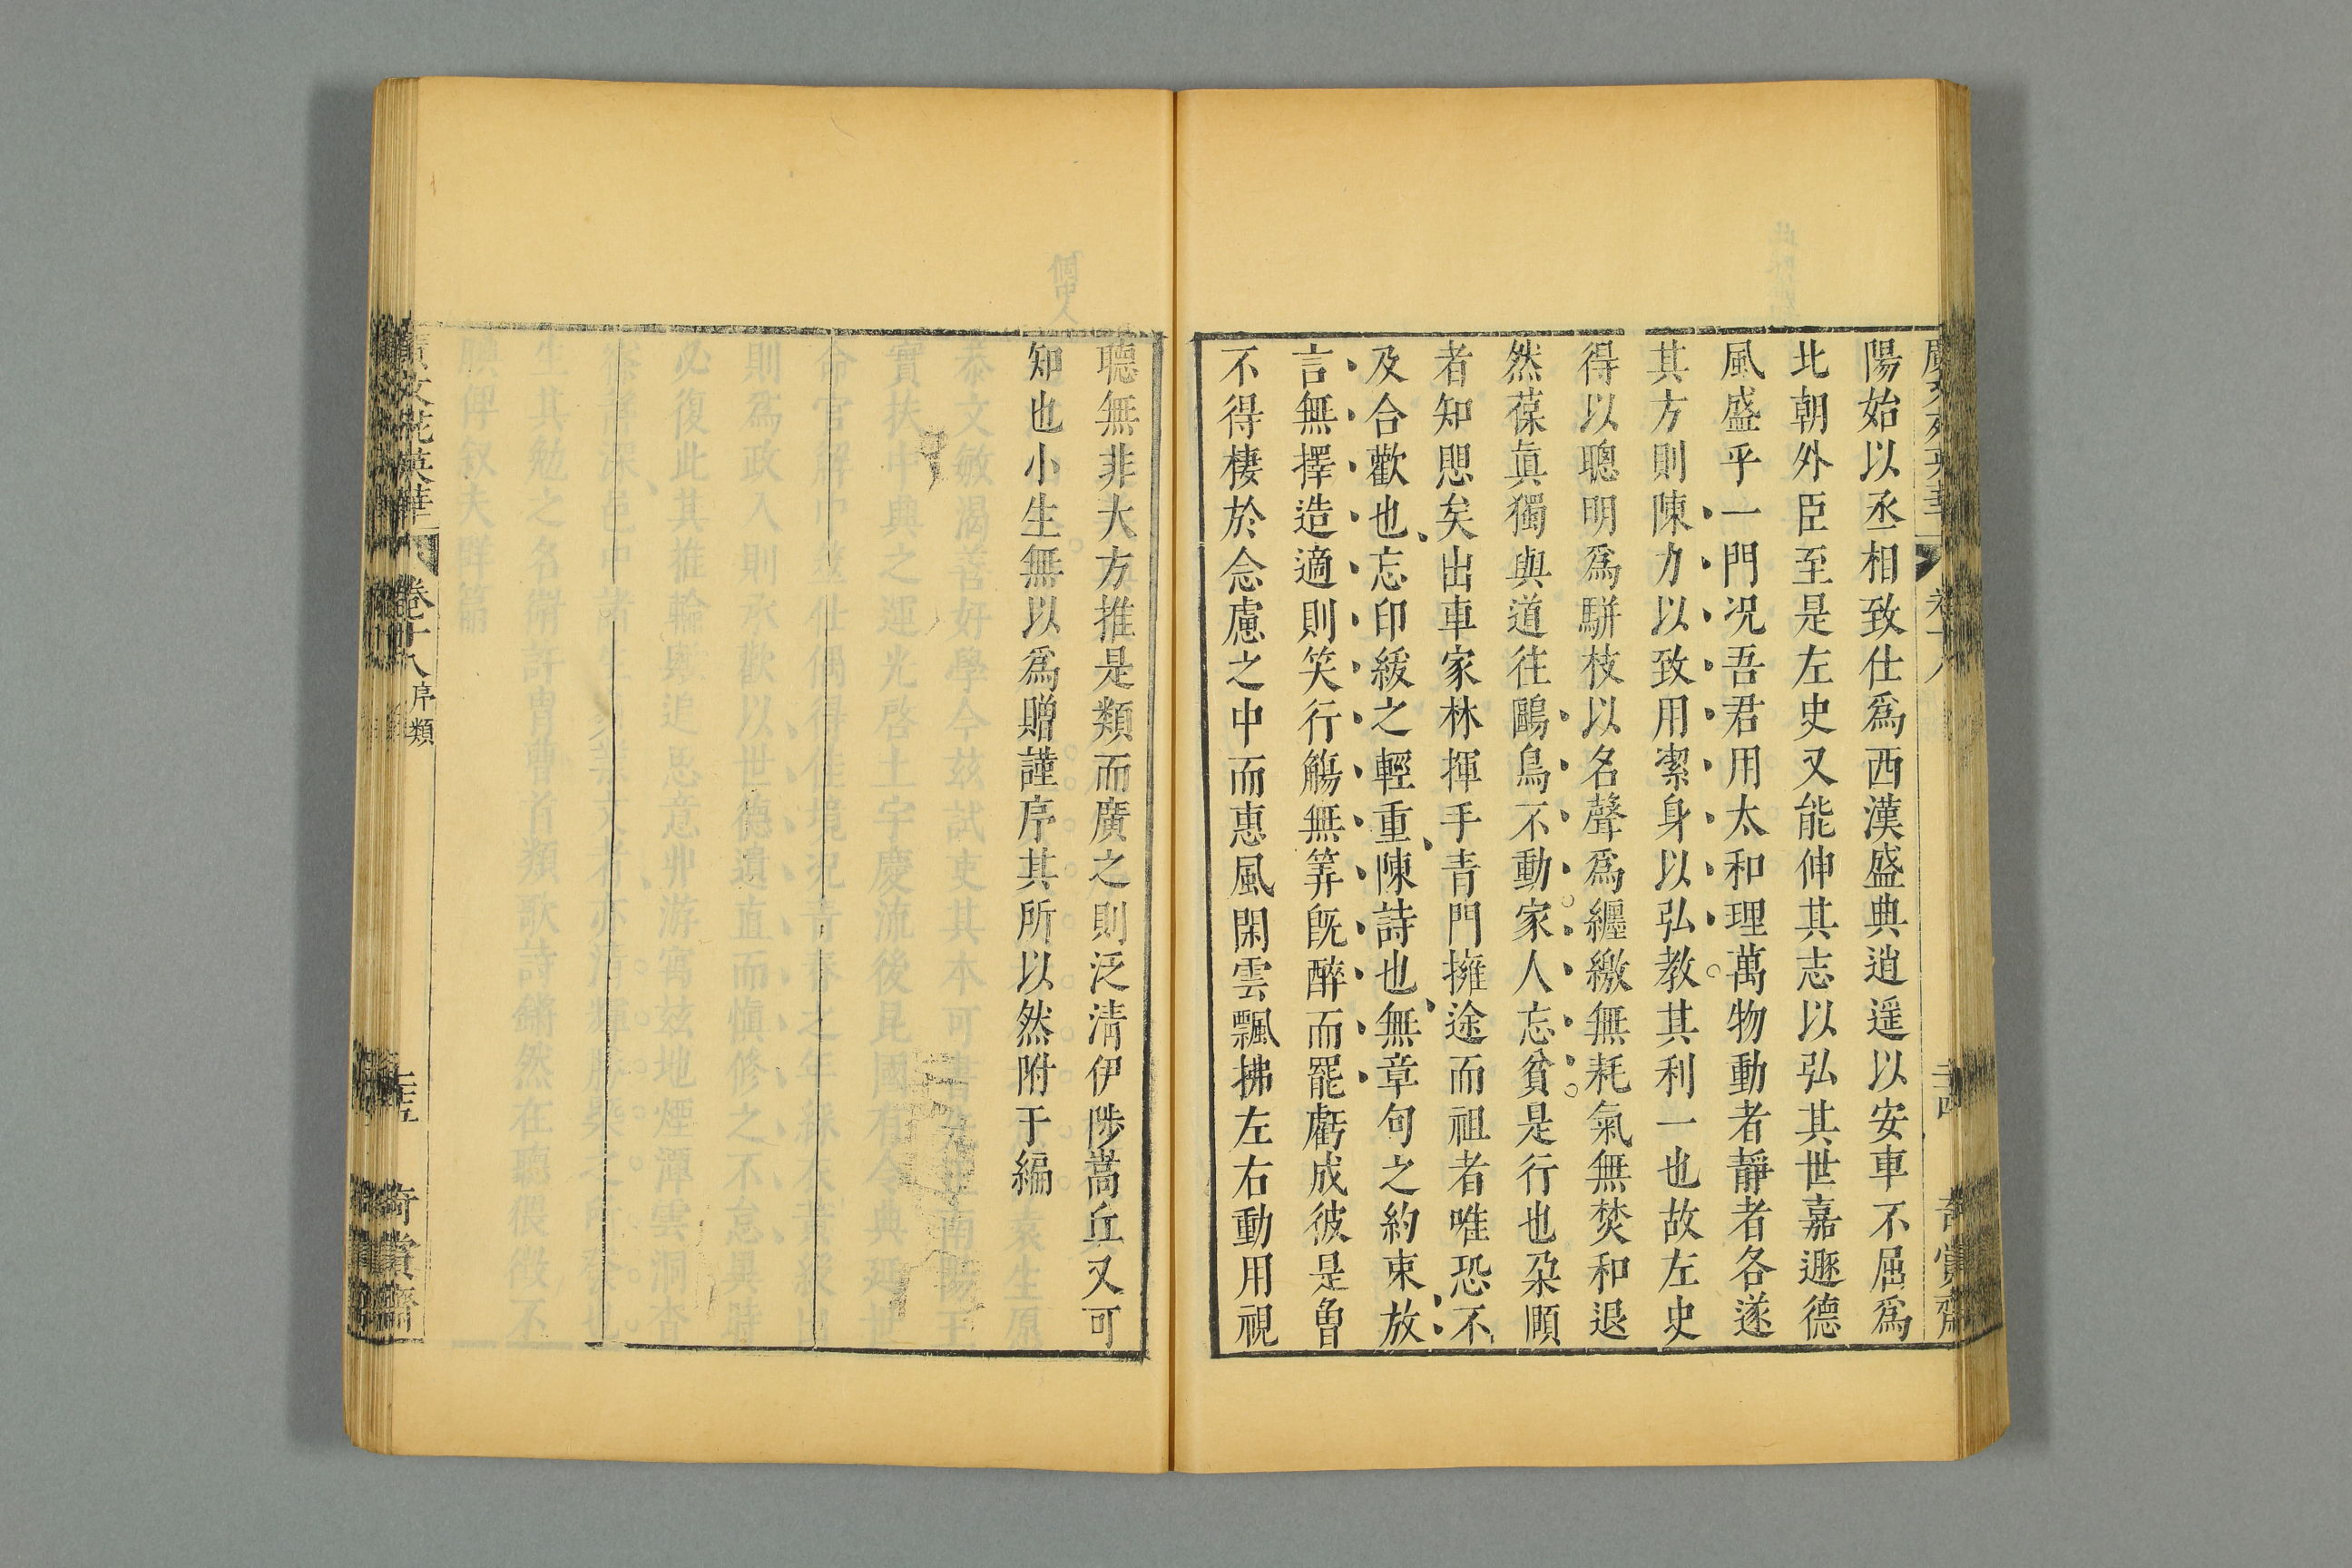 陽始以丞相致仕爲西漢盛典逍遥以安車不屈爲
北朝外臣至是左史又能伸其志以弘其世嘉遯德
風盛乎一門况吾君用太和理萬物動者靜者各遂
其方則陳力以致用潔身以弘教其利一也故左史
得以聰明爲駢枝以名聲爲纏繳無耗氣無焚和退
然葆眞獨與道往鷗鳥不動家人忘貧是行也朶頤
者知愳矣出車家林揮手青門擁途而祖者唯恐不
及合歡也忘印綬之輕重陳詩也無章句之約束放
言無擇造適則笑行觴無筭旣醉而罷虧成彼是曾
不得棲於念慮之中而惠風閑雲飄拂左右動用視
聽無非大方推是類而廣之則泛清伊陟嵩丘又可
知也小生無以爲贈謹序其所以然附于編
文苑英華
卷十八
序類
奇賞齋